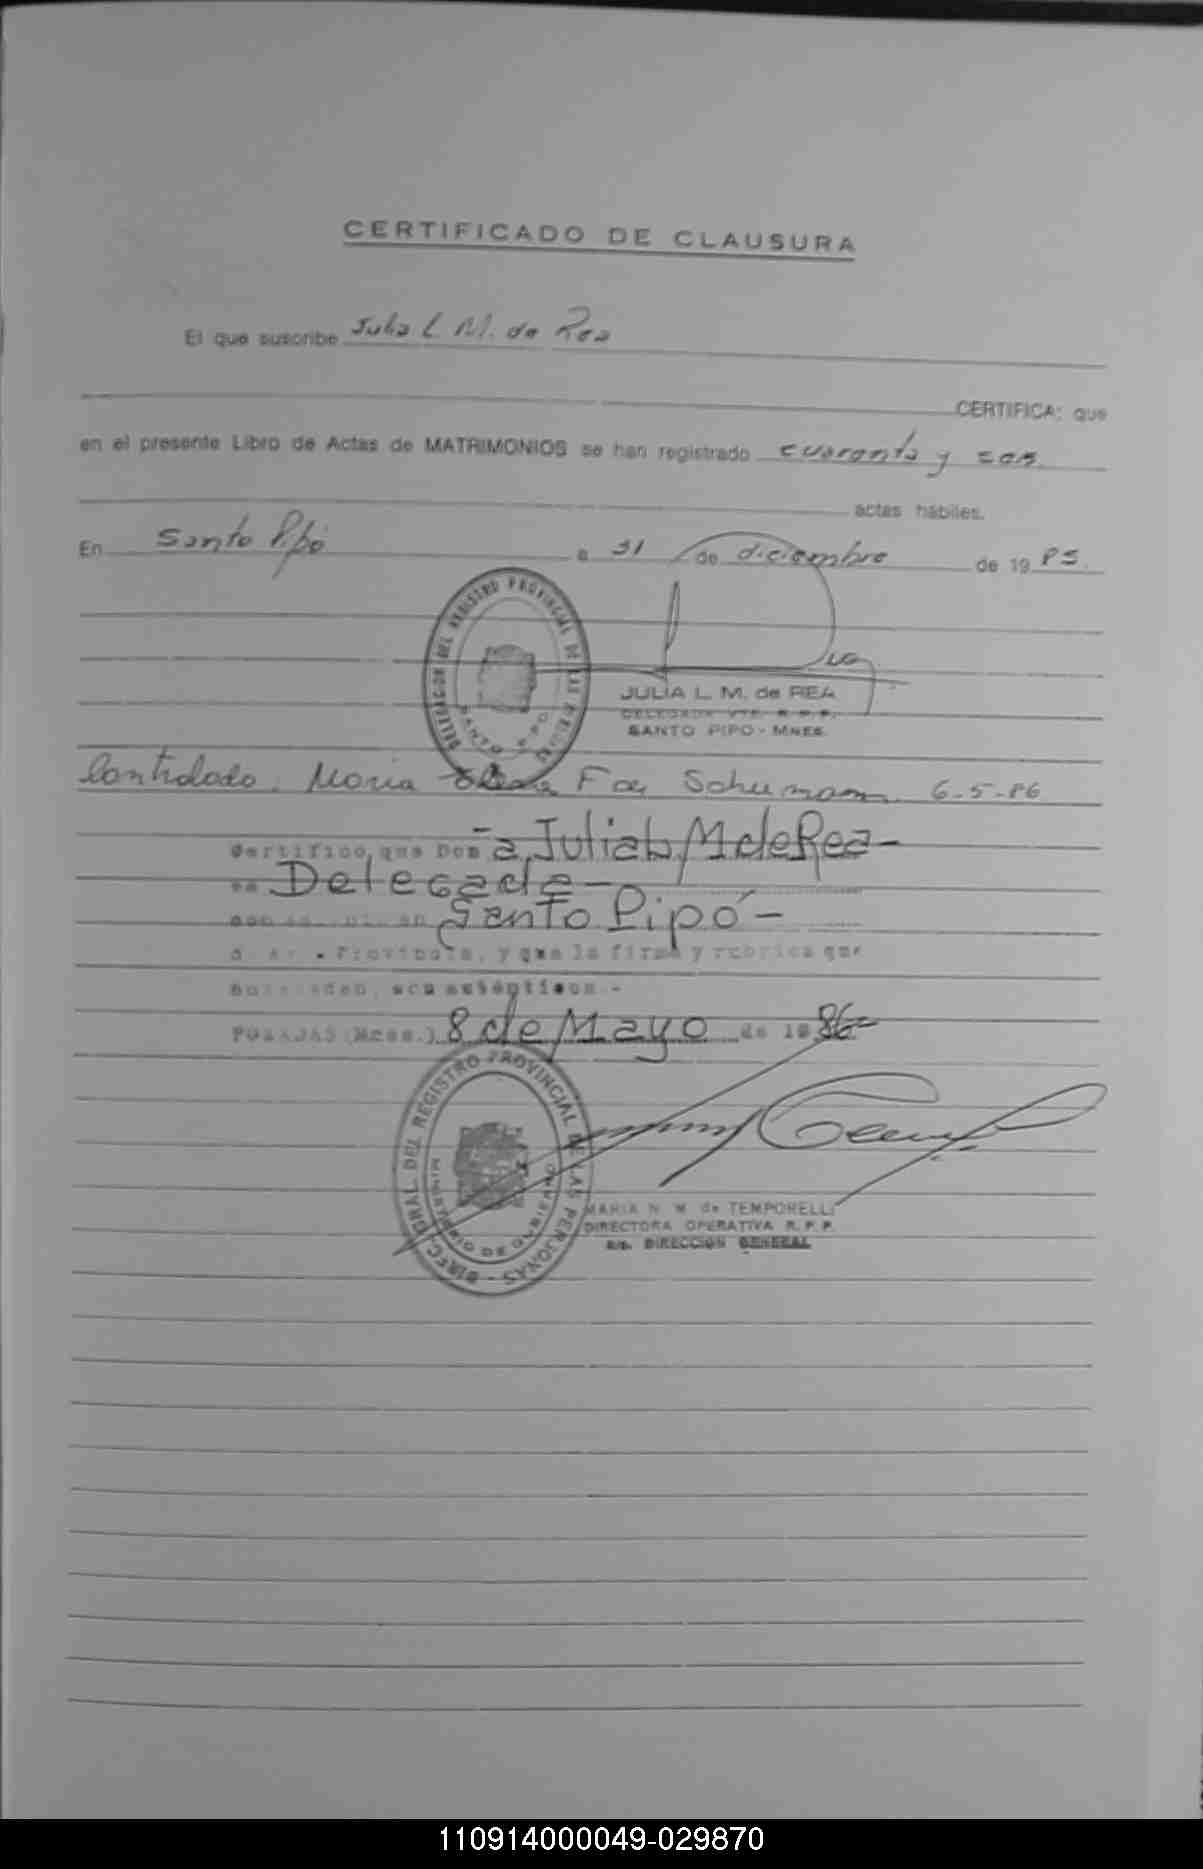 CERTIFICADO DE CLAUSURA
El que suscribe Julia L M. de Rea
CERTIFICA: que
en el presente Libro de Actas de MATRIMONIOS se han registrado cuarenta y
actas hábiles.
En Santo Pipó a 31 de diciembre de 19 85
DELEGACION DEL REGISTRO PROVINCIAL DE LAS PERSONAS
SANTO PIPO
JULIA L. M. de REA
DELEGADA R. P. P.
SANTO PIPO - MNES.
Controlado. Maria Schumann 6-5-86
Certifico, que Don a Julia L. M de Rea -
es Delegada -
en Santo Pipó -
Provincia, y que la firma y rubrica que
anteceden, son auténticos.-
POSADAS (Mnes.) 8 de Mayo de 19 86-
DIREC. GRAL. DEL REGISTRO PROVINCIAL DE LAS PERSONAS -
MINISTERIO DE GOBIERNO
MARIA N. M. de TEMPORELLI
DIRECTORA OPERATIVA R. P. P.
a/c. DIRECCION GENERAL
110914000049-029870